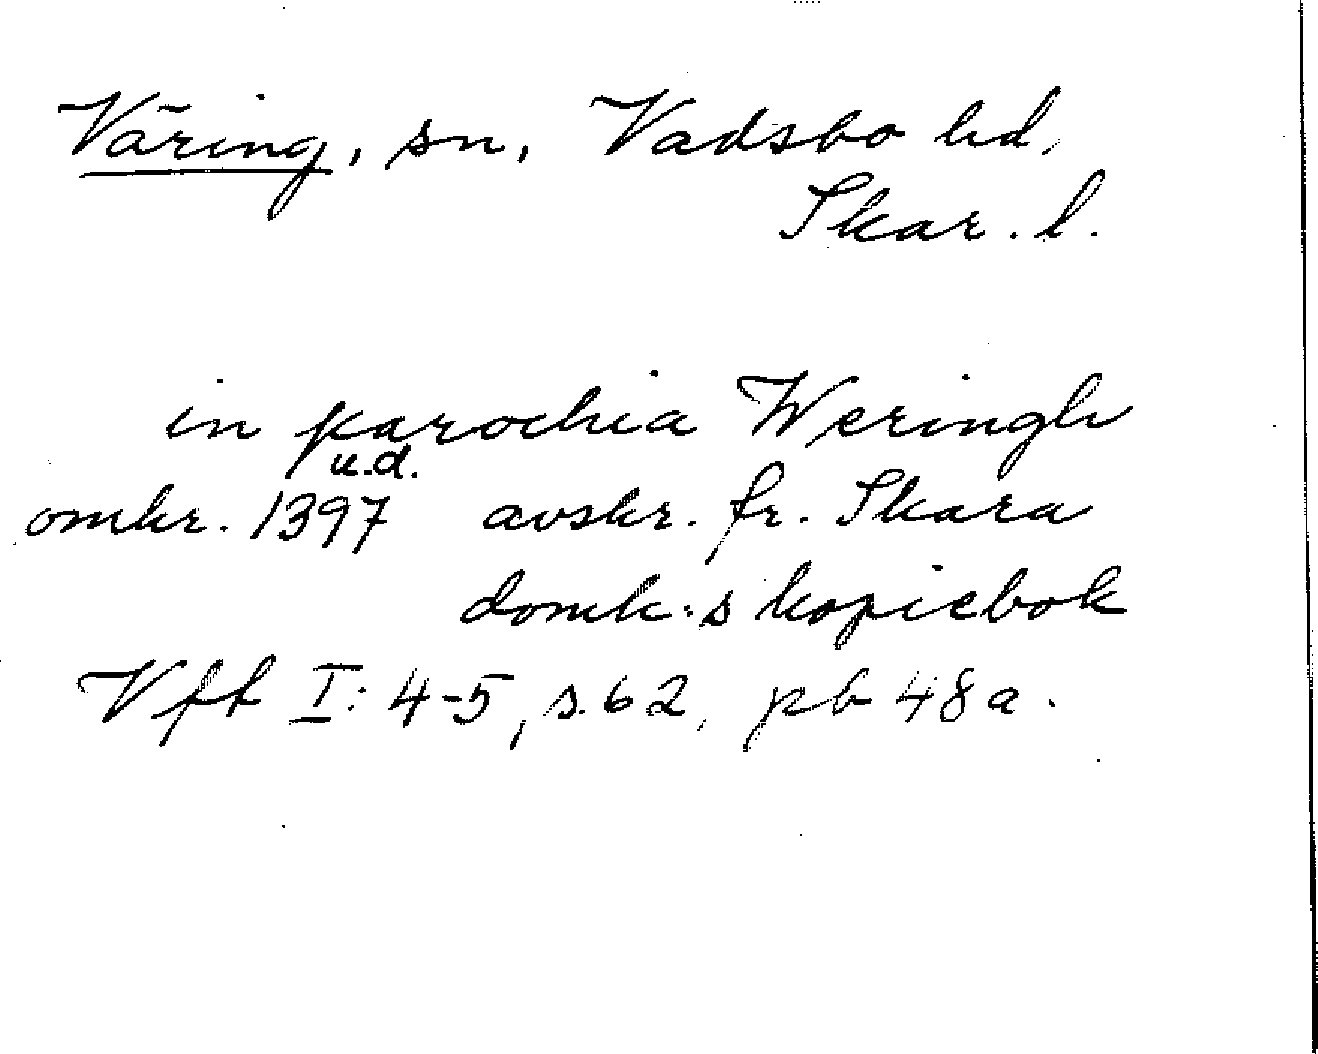 Väring, sn, Vadsbo hd,
Skar. l.
in parochia Weringh
u.d.
omkr. 1397 avskr. fr. Skara
domk:s kopiebok
Vft I: 4-5, s. 62, pb 48 a.